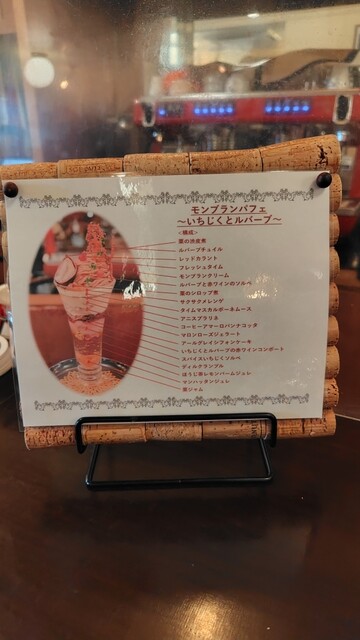 モンブランパフェ
〜いちじくとルバーブ〜
<構成>
栗の渋皮煮
ルバーブチュイル
レッドカラント
フレッシュタイム
モンブランクリーム
ルバーブと赤ワインのソルベ
栗のシロップ煮
サクサクメレンゲ
タイムマスカルポーネムース
アニスプラリネ
コーヒーアマーロパンナコッタ
マロンローズジェラート
アールグレイシフォンケーキ
いちじくとルバーブの赤ワインコンポート
スパイスいちじくソルベ
ディルクランブル
ほうじ茶レモンバームジュレ
マンハッタンジュレ
栗ジャム